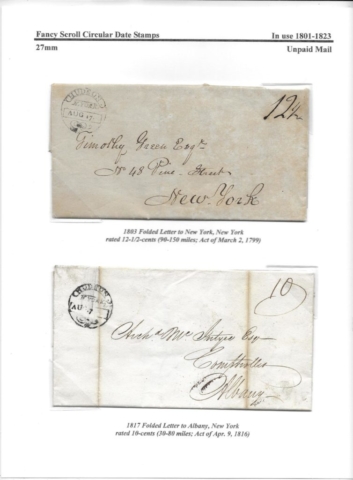 Fancy Scroll Circular Date Stamps
In use 1801-1823
27mm
Unpaid Mail
HUDSON
AUG
12½
Timothy Green Esqr
No 48 Pine Street
New York
1803 Folded Letter to New York, New York
rated 12-1/2-cents (90-150 miles; Act of March 2, 1799)
HUDSON
AU
10
Archd Mc Intyre Esq
Comptroller
Albany
1817 Folded Letter to Albany, New York
rated 10-cents (30-80 miles; Act of Apr. 9, 1816)